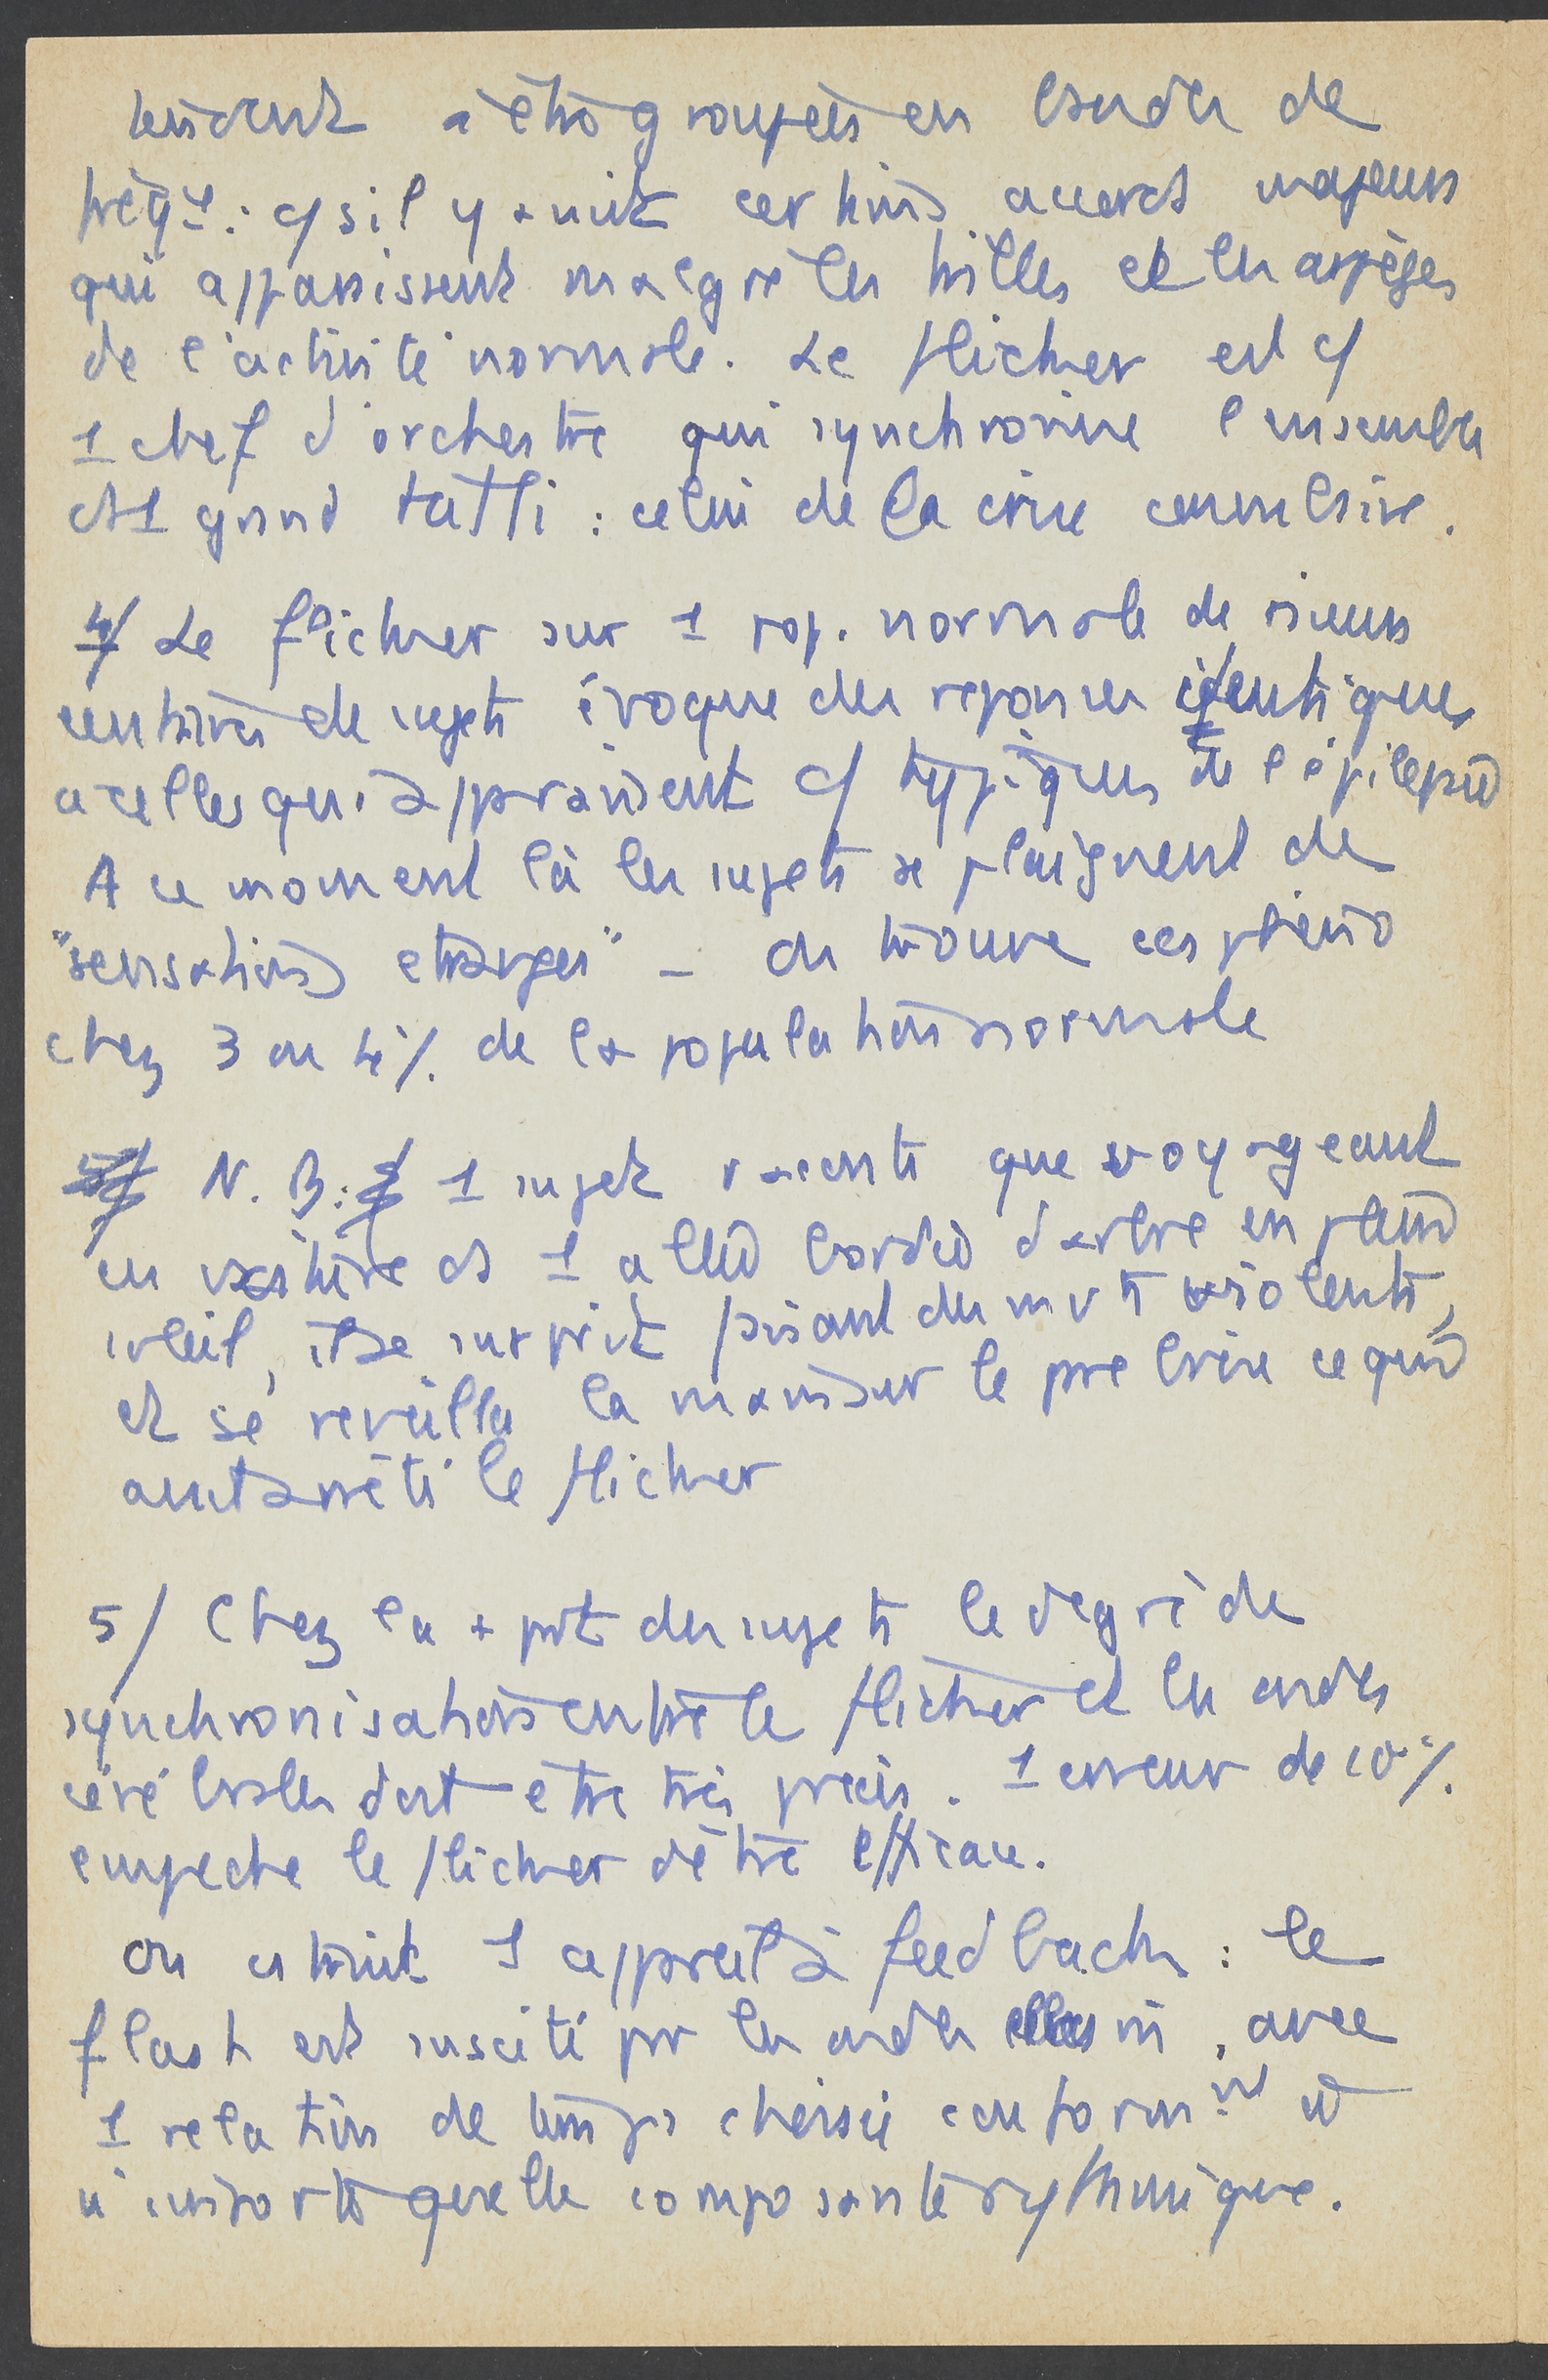 tendent à être groupées en bandes de
fréqce : c/ s'il y avait certains accords majeurs
qui apparaissent malgré les trilles et les arpèges
de l'activité normale. Le flicker est c/
1 chef d'orchestre qui synchronise l'ensemble
ds 1 grand tutti : celui de la crise convulsive.
4/ Le flicker sur 1 pop. normale de plusieurs
centaines de sujets évoque des reponses identiques
a celles qui apparaissent c/ typiques de l'épilepsie
A ce moment là les sujets se plaignent de
"sensations etranges" - On trouve ces phéno
chez 3 ou 4% de la population normale
N. B : 1 sujet raconte que voyageant
en voiture ds 1 allée bordée d'arbre en plein
soleil, il se surprit faisant des mvts violents,
et se réveilla la main sur le pare brise ce qui
avait arrêté le flicker
5/ Chez la + part des sujets le degré de
synchronisation entre le flicker et les ondes
cérébrales doit etre très précis. 1 erreur de 10%
empeche le flicker d'être efficace.
On cstruit 1 appareil à feedback : le
flash est suscité par les ondes elles m̂, avec
1 relation de temps choisie conformt à
n'importe quelle composante rythmique.